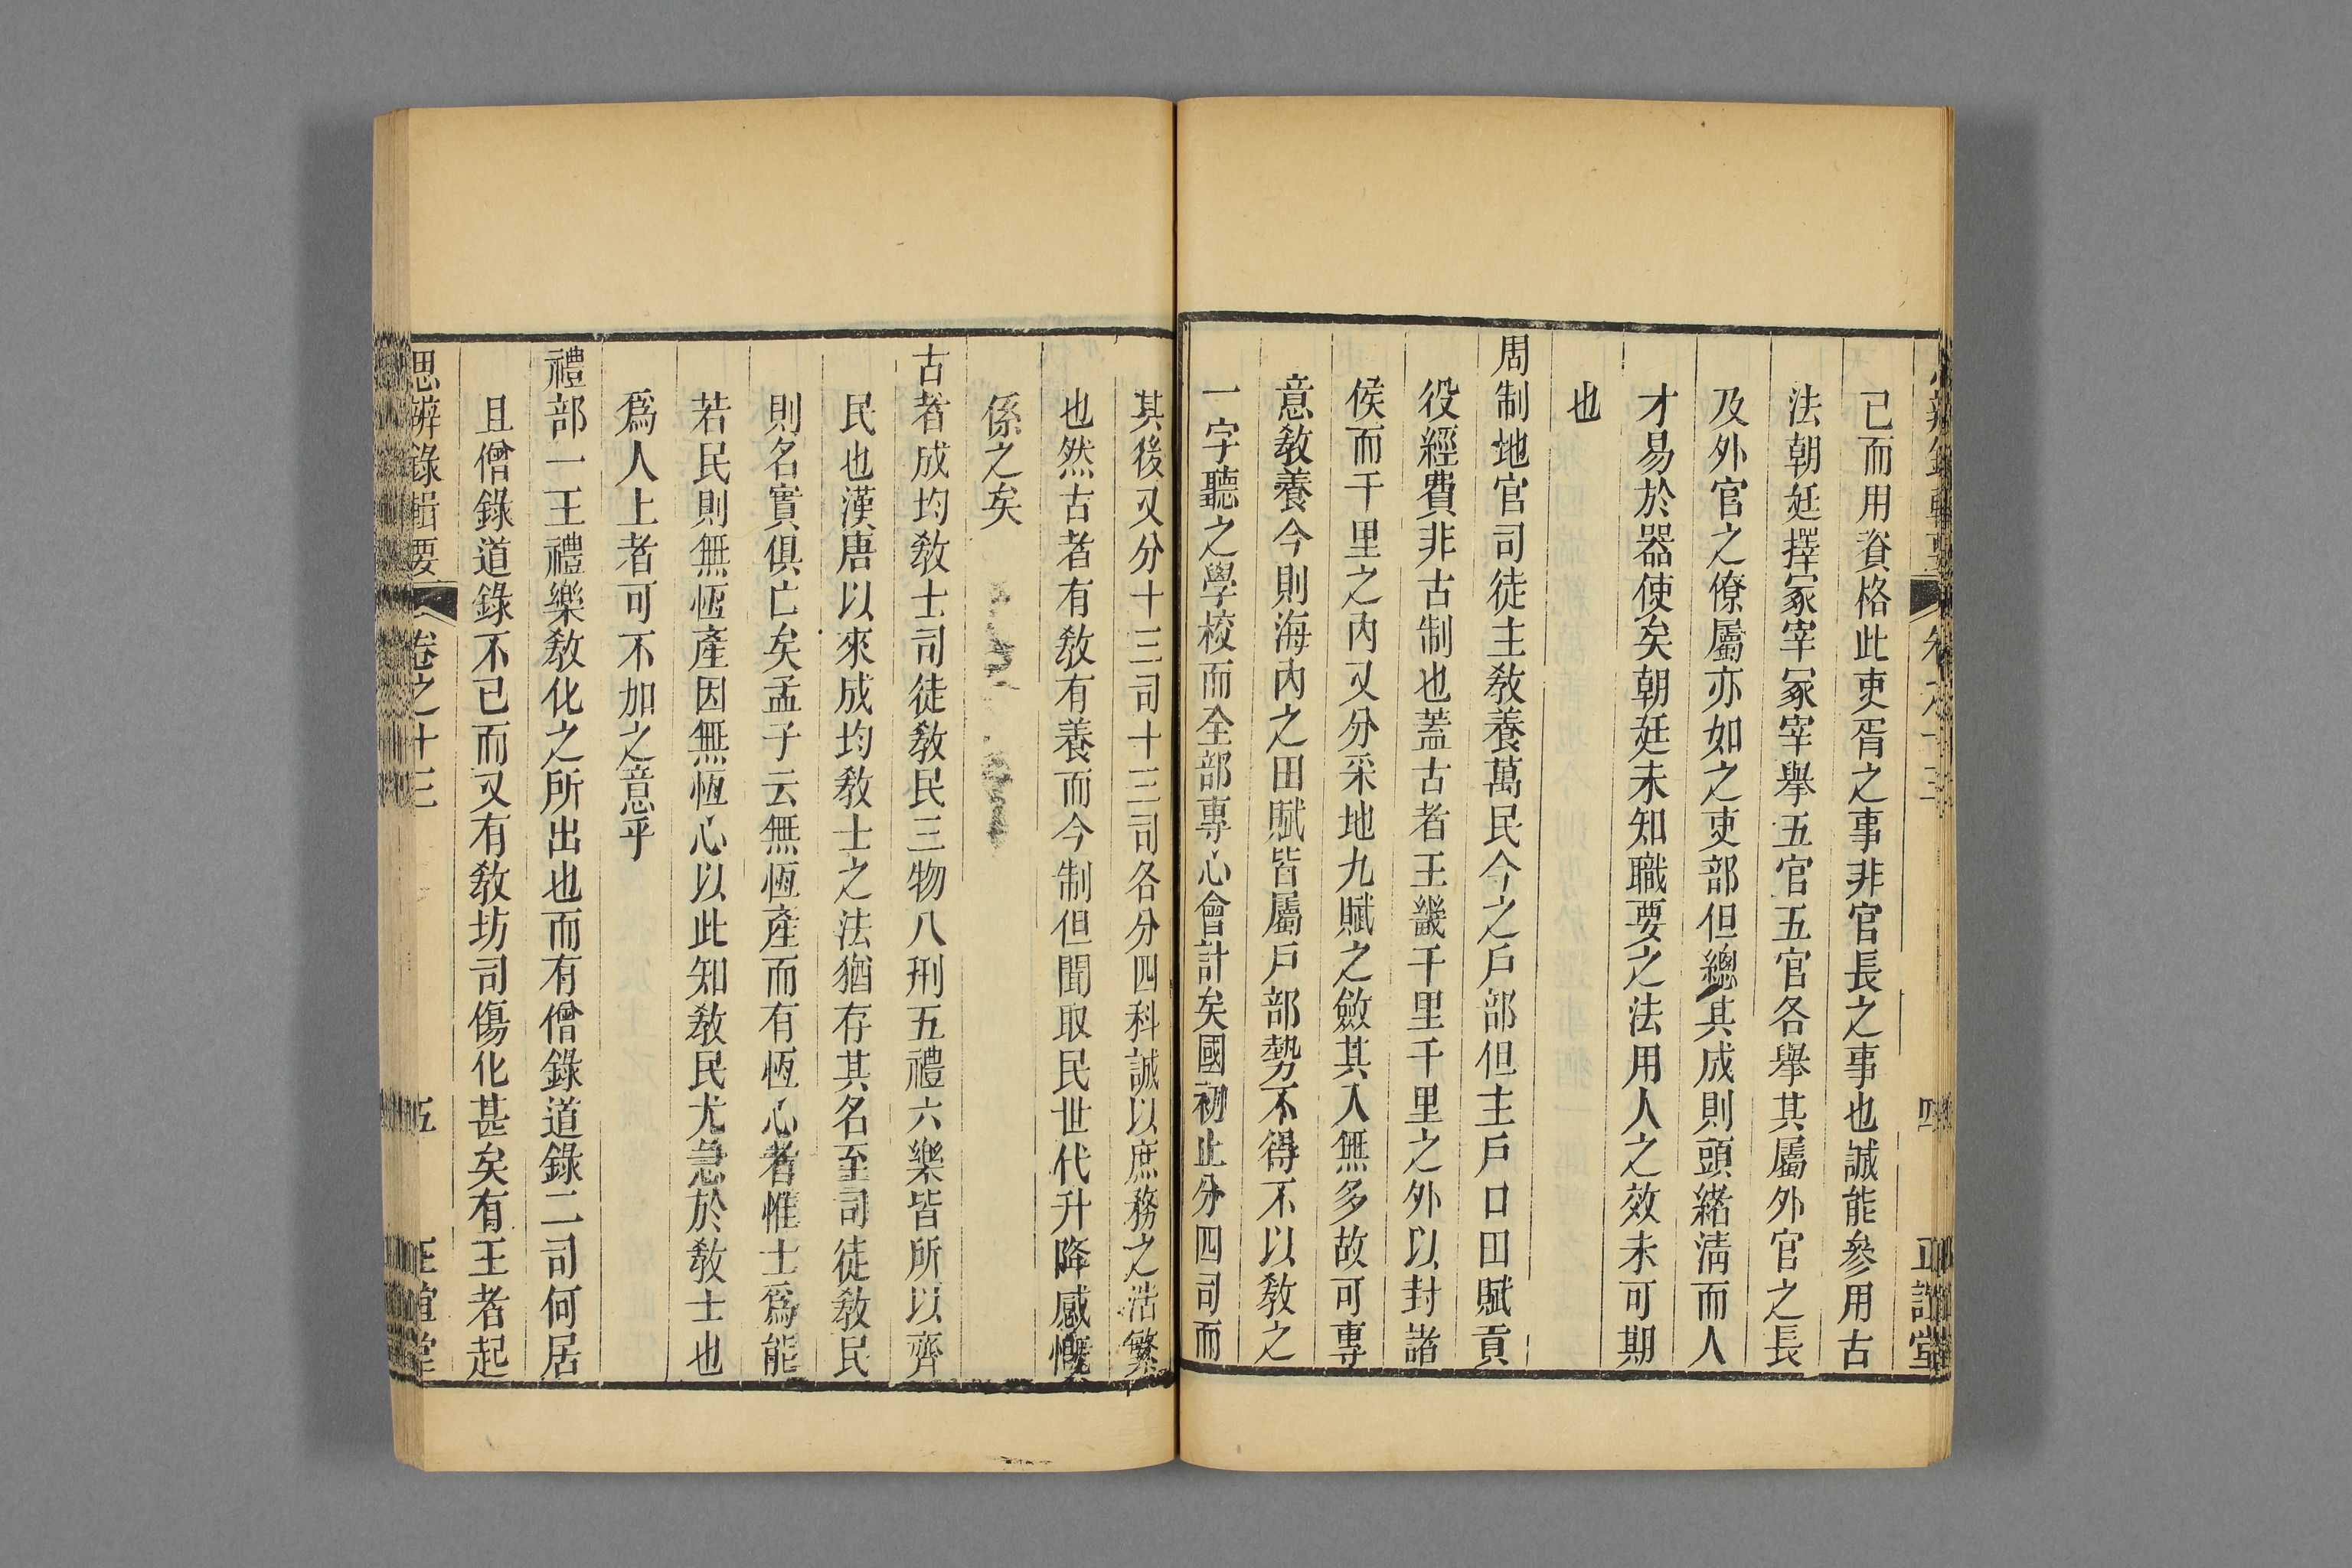 已而用資格此吏胥之事非官長之事也誠能參用古
法朝廷擇冢宰冢宰舉五官五官各舉其屬外官之長
及外官之僚屬亦如之吏部但總其成則頭緒淸而人
才易於器使矣朝廷未知職要之法用人之效未可期
也
周制地官司徒主敎養萬民今之戶部但主戶口田賦貢
役經費非古制也蓋古者王畿千里千里之外以封諸
侯而千里之內又分采地九賦之斂其入無多故可專
意敎養今則海內之田賦皆屬戶部勢不得不以敎之
一字聽之學校而全部專心會計矣國初止分四司而
其後又分十三司十三司各分四科誠以庶務之浩繁
也然古者有敎有養而今制但聞取民世代升降感慨
係之矣
古者成均敎士司徒敎民三物八刑五禮六樂皆所以齊
民也漢唐以來成均敎士之法猶存其名至司徒敎民
則名實俱亡矣孟子云無恆產而有恆心者惟士爲能
若民則無恆產因無恆心以此知敎民尤急於敎士也
爲人上者可不加之意乎
禮部一王禮樂敎化之所出也而有僧錄道錄二司何居
且僧錄道錄不已而又有敎坊司傷化甚矣有王者起
思辨錄輯要 卷之十三 五 正誼堂